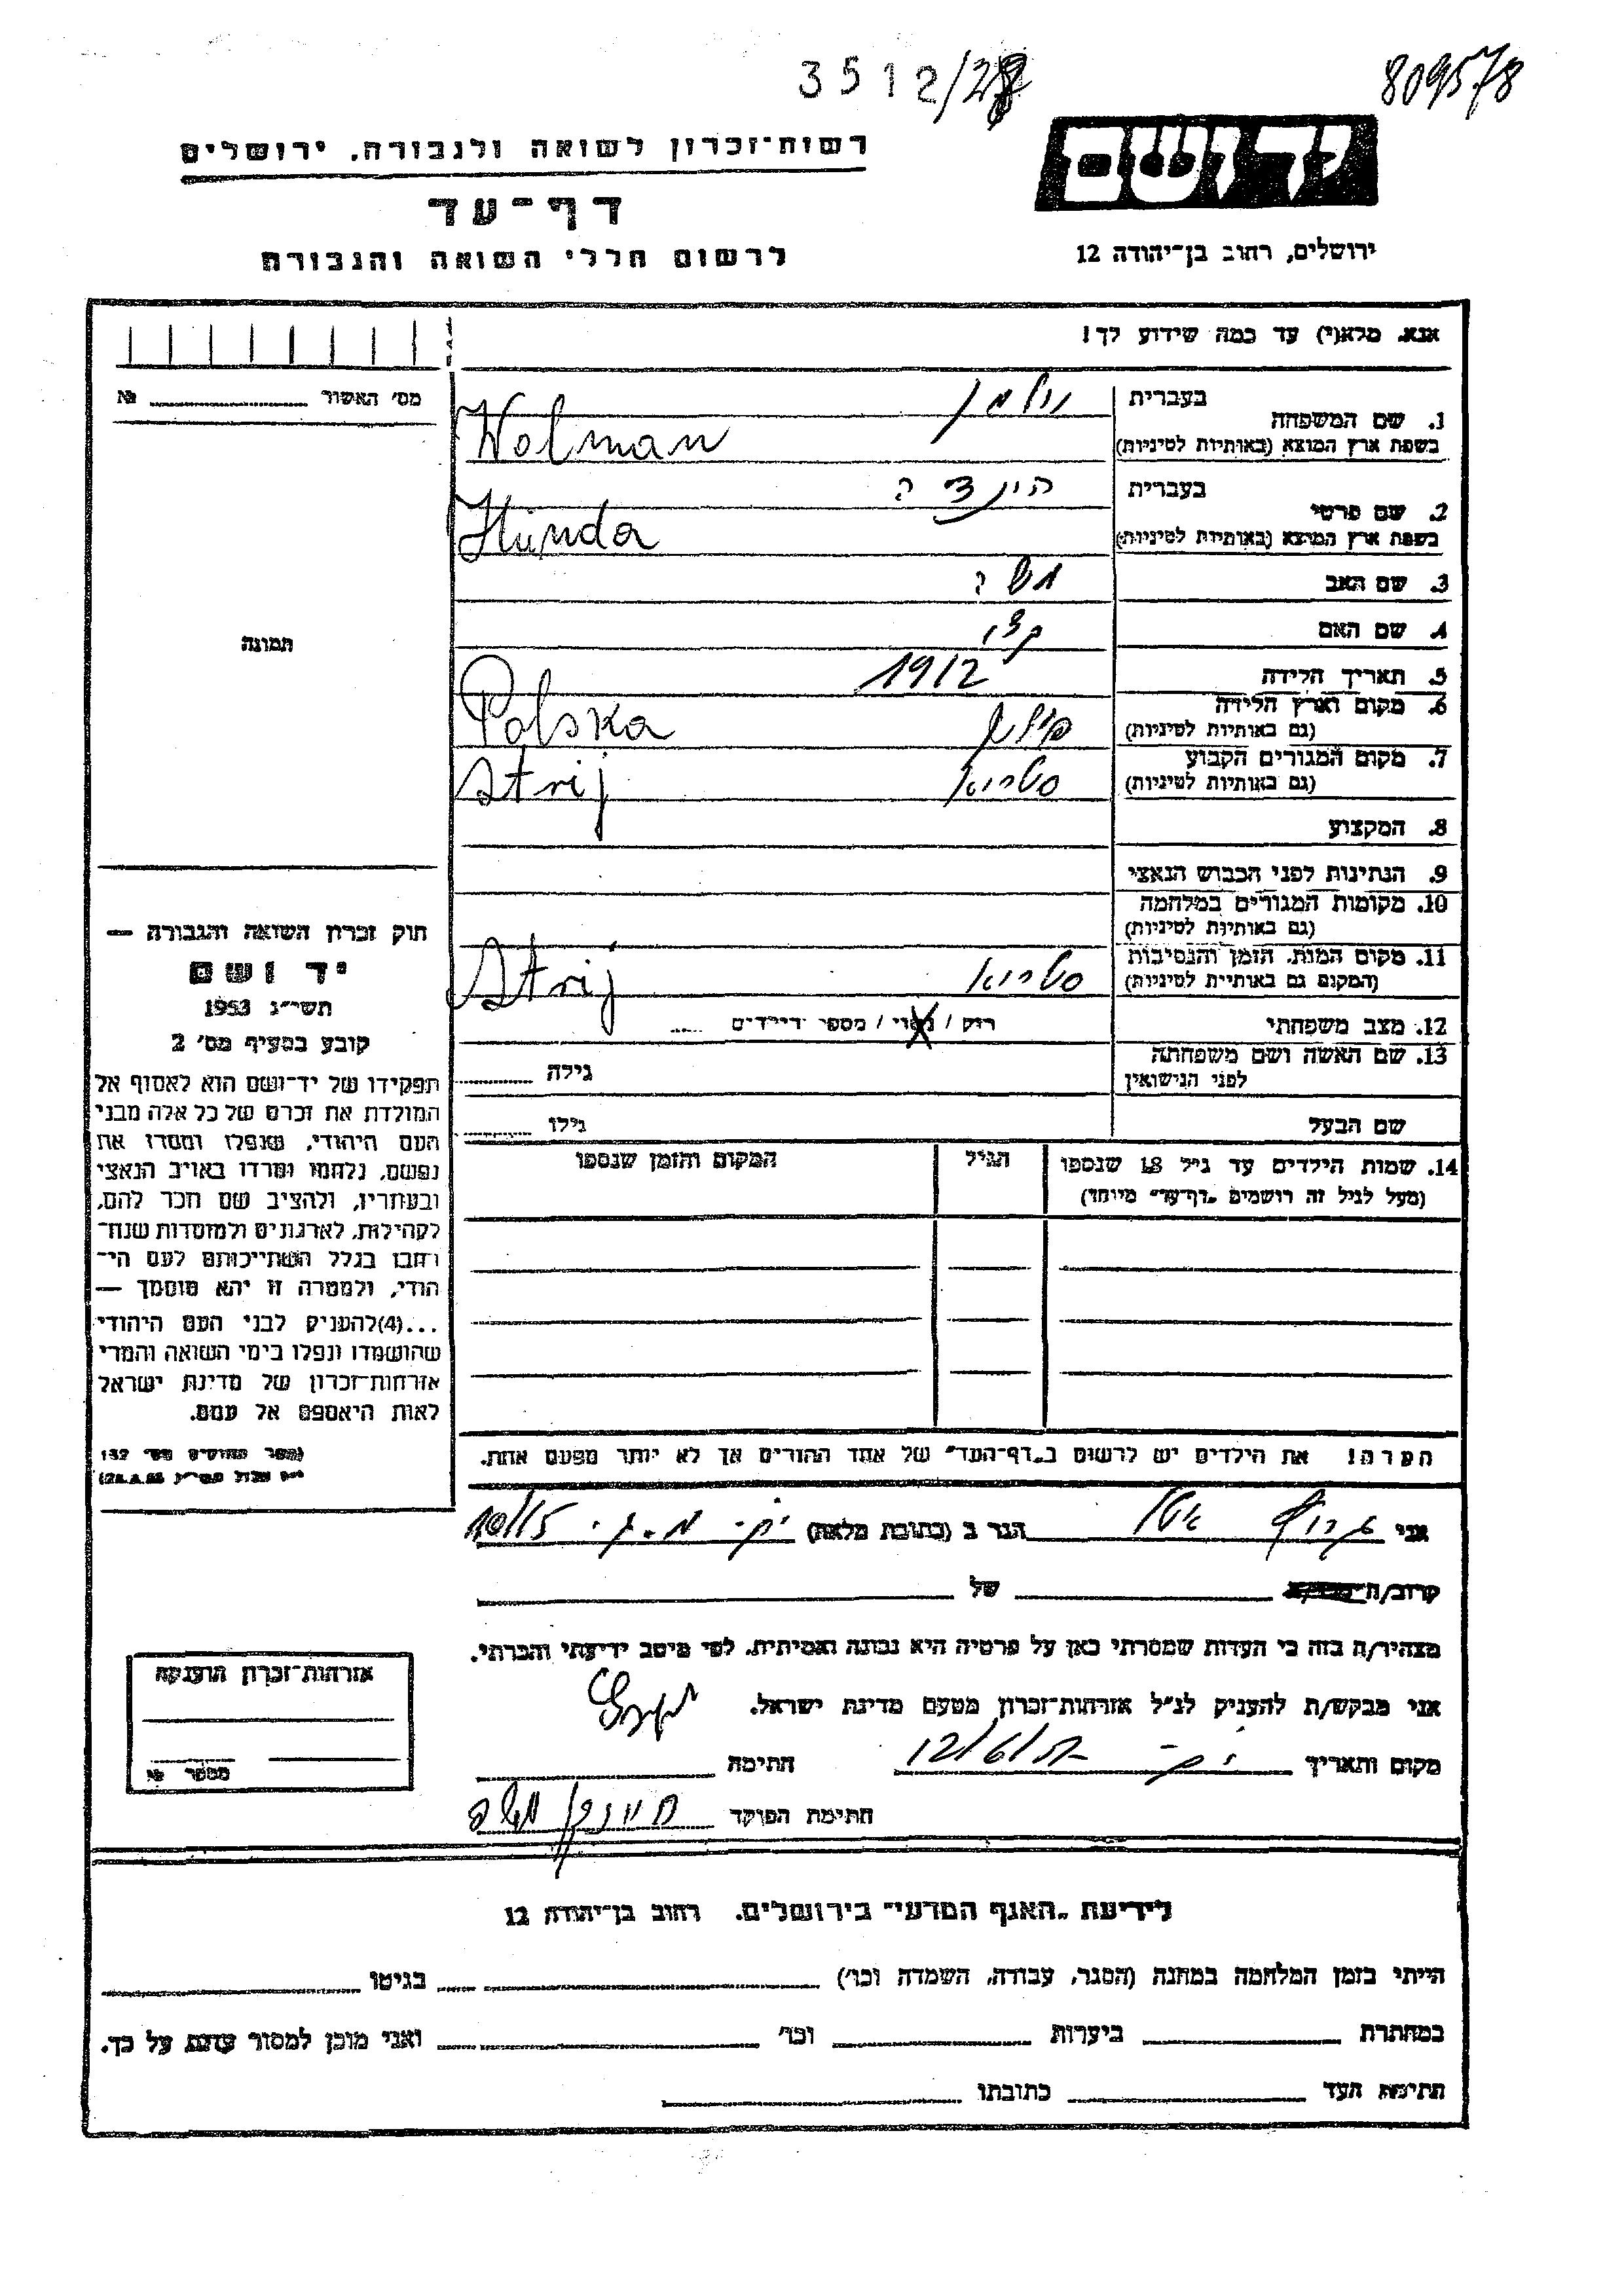 3512/27
809578
רשות־זכרון לשואה ולגבורה. ירושלים
דף־עד
לרשום חללי השואה והגבורה
יד ושם
ירושלים, רחוב בן־יהודה 12
אנא. מלא(י) עד כמה שידוע לך!
מס׳ האשור № 
תמונה
1. שם המשפחה
בעברית וולמן
בשפת ארץ המוצא (באותיות לטיניות) Wolman
2. שם פרטי
בעברית הינדה
בשפת ארץ המוצא (באותיות לטיניות) Hinda
3. שם האב משה
4. שם האם
5. תאריך הלידה 1912
6. מקום וארץ הלידה
(גם באותיות לטיניות) פולין Polska
7. מקום המגורים הקבוע
(גם באותיות לטיניות) סטריא Strij
8. המקצוע
9. הנתינות לפני הכבוש הנאצי
10. מקומות המגורים במלחמה
(גם באותיות לטיניות)
11. מקום המות. הזמן והנסיבות
(המקום גם באותיות לטיניות) סטריא Strij
12. מצב משפחתי רוק / נשוי / מספר הילדים
13. שם האשה ושם משפחתה
לפני הנישואין גילה
שם הבעל גילו
14. שמות הילדים עד גיל 18 שנספו
(מעל לגיל זה רושמים „דף־עד״ מיוחד)
הגיל
המקום והזמן שנספו
הערה! את הילדים יש לרשום ב„דף־העד״ של אחד ההורים אך לא יותר מפעם אחת.
חוק זכרון השואה והגבורה —
יד ושם
תשי״ג 1953
קובע בסעיף מס׳ 2
תפקידו של יד־ושם הוא לאסוף אל
המולדת את זכרם של כל אלה מבני
העם היהודי, שנפלו ומסרו את
נפשם, נלחמו ומרדו באויב הנאצי
ובעוזריו, ולהציב שם וזכר להם,
לקהילות, לארגונים ולמוסדות שנח־
רבו בגלל השתייכותם לעם הי־
הודי, ולמטרה זו יהא מוסמך —
...(4)להעניק לבני העם היהודי
שהושמדו ונפלו בימי השואה והמרי
אזרחות־זכרון של מדינת ישראל
לאות היאספם אל עמם.
(ספר החוקים מס׳ 132
אני הגר ב (כתובת מלאה) 
קרוב/ה של
מצהיר/ה בזה כי העדות שמסרתי כאן על פרטיה היא נכונה ואמיתית. לפי מיטב ידיעתי והכרתי.
אני מבקש/ת להעניק לנ״ל אזרחות־זכרון מטעם מדינת ישראל.
מקום ותאריך חתימה
חתימת הפוקד
אזרחות־זכרון הוענקה
מספר №
לידיעת „האגף המדעי״ בירושלים. רחוב בן־יהודה 12
הייתי בזמן המלחמה במחנה (הסגר, עבודה, השמדה וכו׳) בגיטו
במחתרת ביערות וכו׳ ואני מוכן למסור עדות על כך.
חתימת העד כתובתו